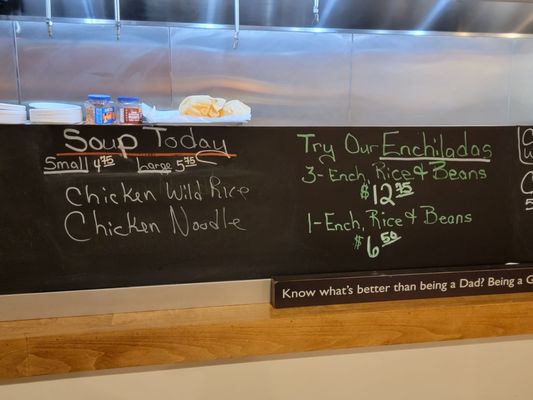 Soup Today
Small 4.75 Large 5.75
Chicken Wild Rice
Chicken Noodle
Try Our Enchiladas
3-Ench, Rice & Beans
$12.95
1-Ench, Rice & Beans
$6.50
Know what's better than being a Dad? Being a G